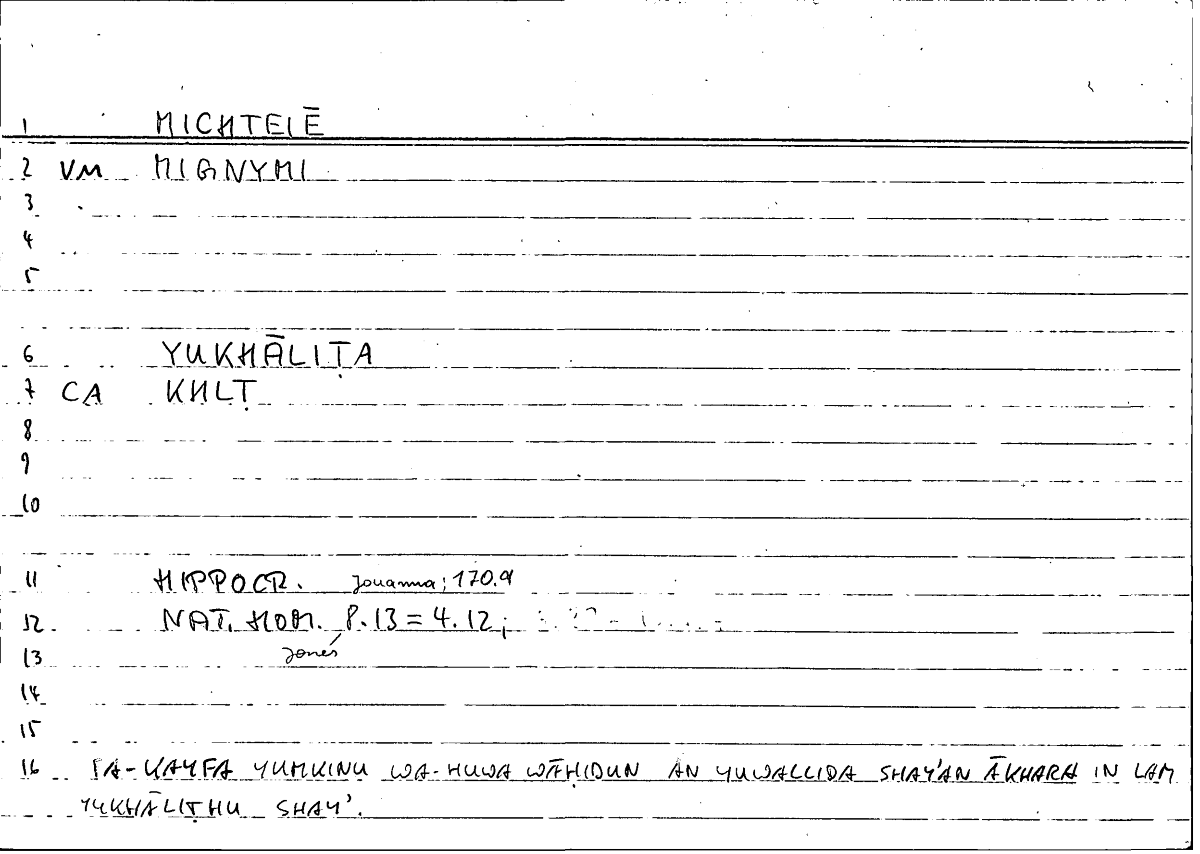 1 MICHTEIĒ
2 VM MIGNYMI
3
4
5
6 YUKHĀLIṬA
7 CA KHLṬ
8
9
10
11 HIPPOCR. Jouanna; 170.9
12. NAT. HOM. 8.13 = 4.12;
13 Jones
14
15
16 FA-KAYFA YUMKINU WA-HUWA WĀḤIDUN AN YUWALLIDA SHAY'AN ĀKHARA IN LAM
YUKHĀLIṬHU SHAY'.